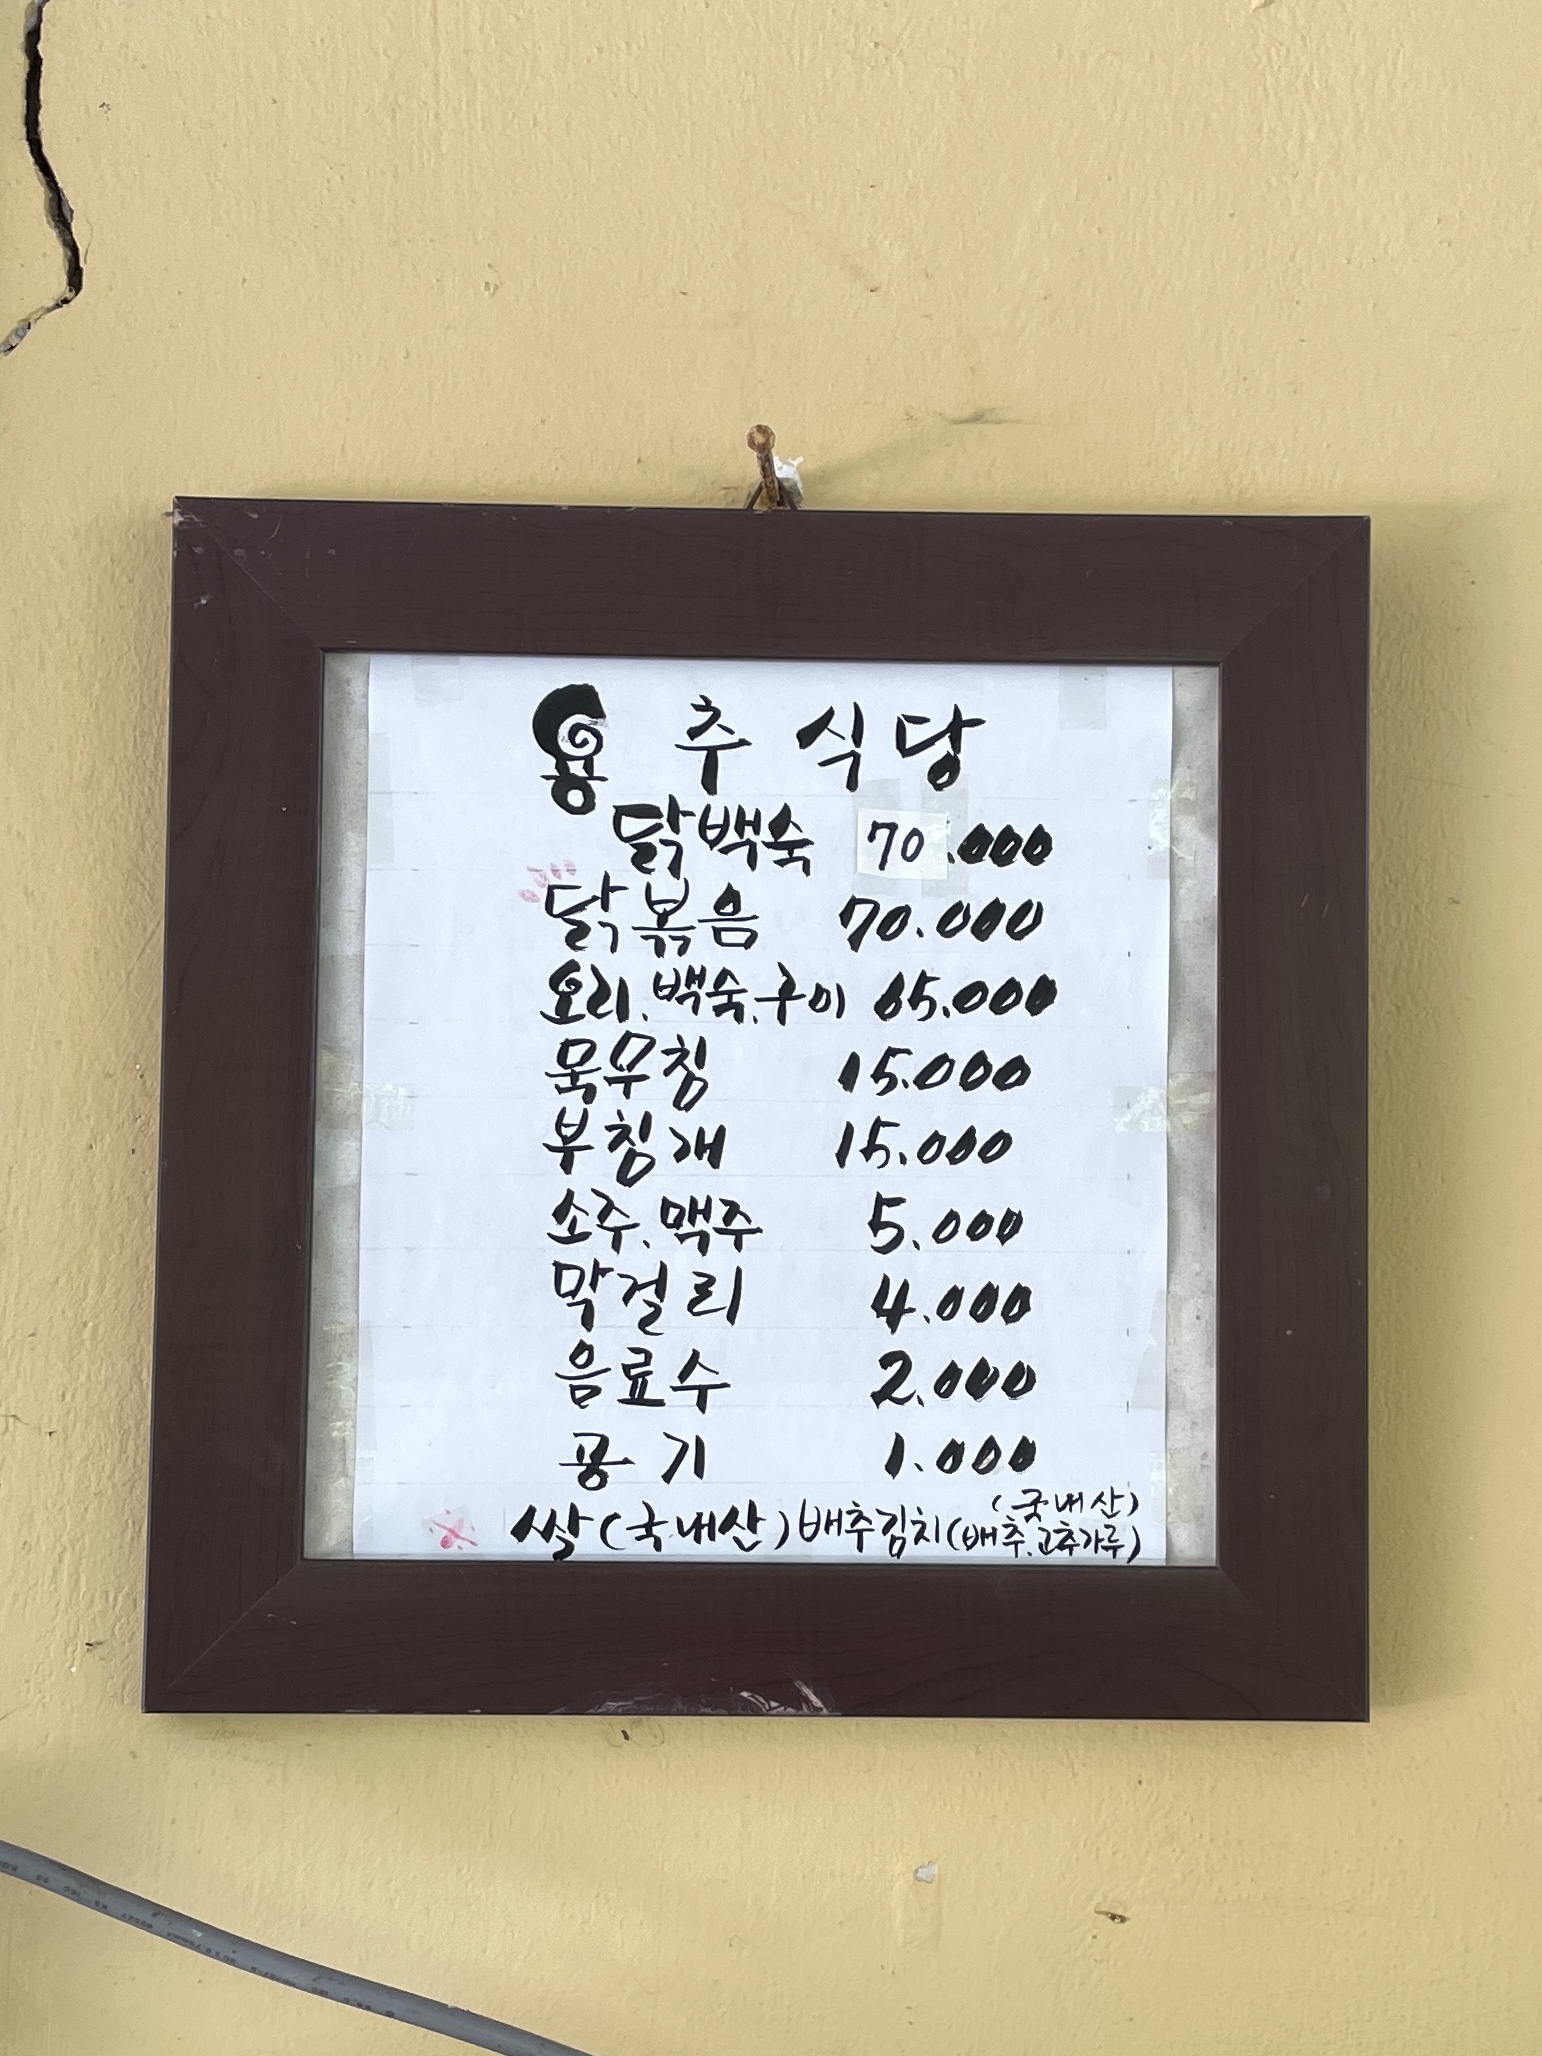 용추식당
닭백숙 70.000
닭볶음 70.000
오리.백숙.구이 65.000
묵무침 15.000
부침개 15.000
소주.맥주 5.000
막걸리 4.000
음료수 2.000
공기 1.000
(국내산)
쌀(국내산)배추김치(배추.고추가루)